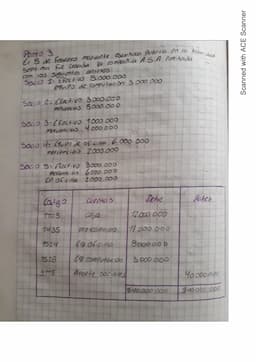 Punto 3
El 5 de Febrero mediante escritura Publica en la notaria
se crea la comercial A.S.A limitada
con los siguientes aportes:
Socio 1: Efectivo 5.000.000
Equipo de computación 3.000.000
Socio 2: Efectivo 3.000.000
mercancias 5.000.000
Socio 3: Efectivo 1.000.000
mercancias 4.000.000
Socio 4: Equipo de oficina 6.000.000
mercancias 2.000.000
Socio 5: Efectivo 3.000.000
mercancias 6.000.000
Eq oficina 2.000.000
Codigo Cuentas Debe Haber
1105 caja 12.000.000
1435 mercancias 17.000.000
1524 Eq oficina 8.000.000
1528 Eq computacion 3.000.000
3115 Aporte sociales 40.000.000
$40.000.000 $40.000.000
Scanned with ACE Scanner